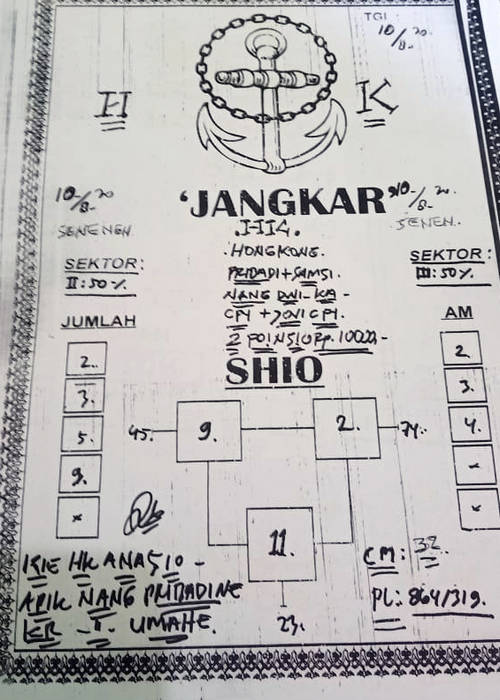 TGl :
10/8-20.
H K
10-/8-20
SENENEN
'JANGKAR'
10-/8-20.
SENEN.
.HK.
.HONGKONG.
PRIBADI + SAMSI.
NANG DWI-KA -
2 POIN SIO Rp. 10000-
SEKTOR:
II : 50%
SEKTOR:
III : 50%
JUMLAH
2.
3.
5.
9.
×
AM
2
3.
4.
×
×
SHIO
45. 9. 2. 74.
11.
23.
CM: 32.
PL: 864/319.
IKIE HK ANA SIO -
APIK NANG PRIBADINE
UMAHE.